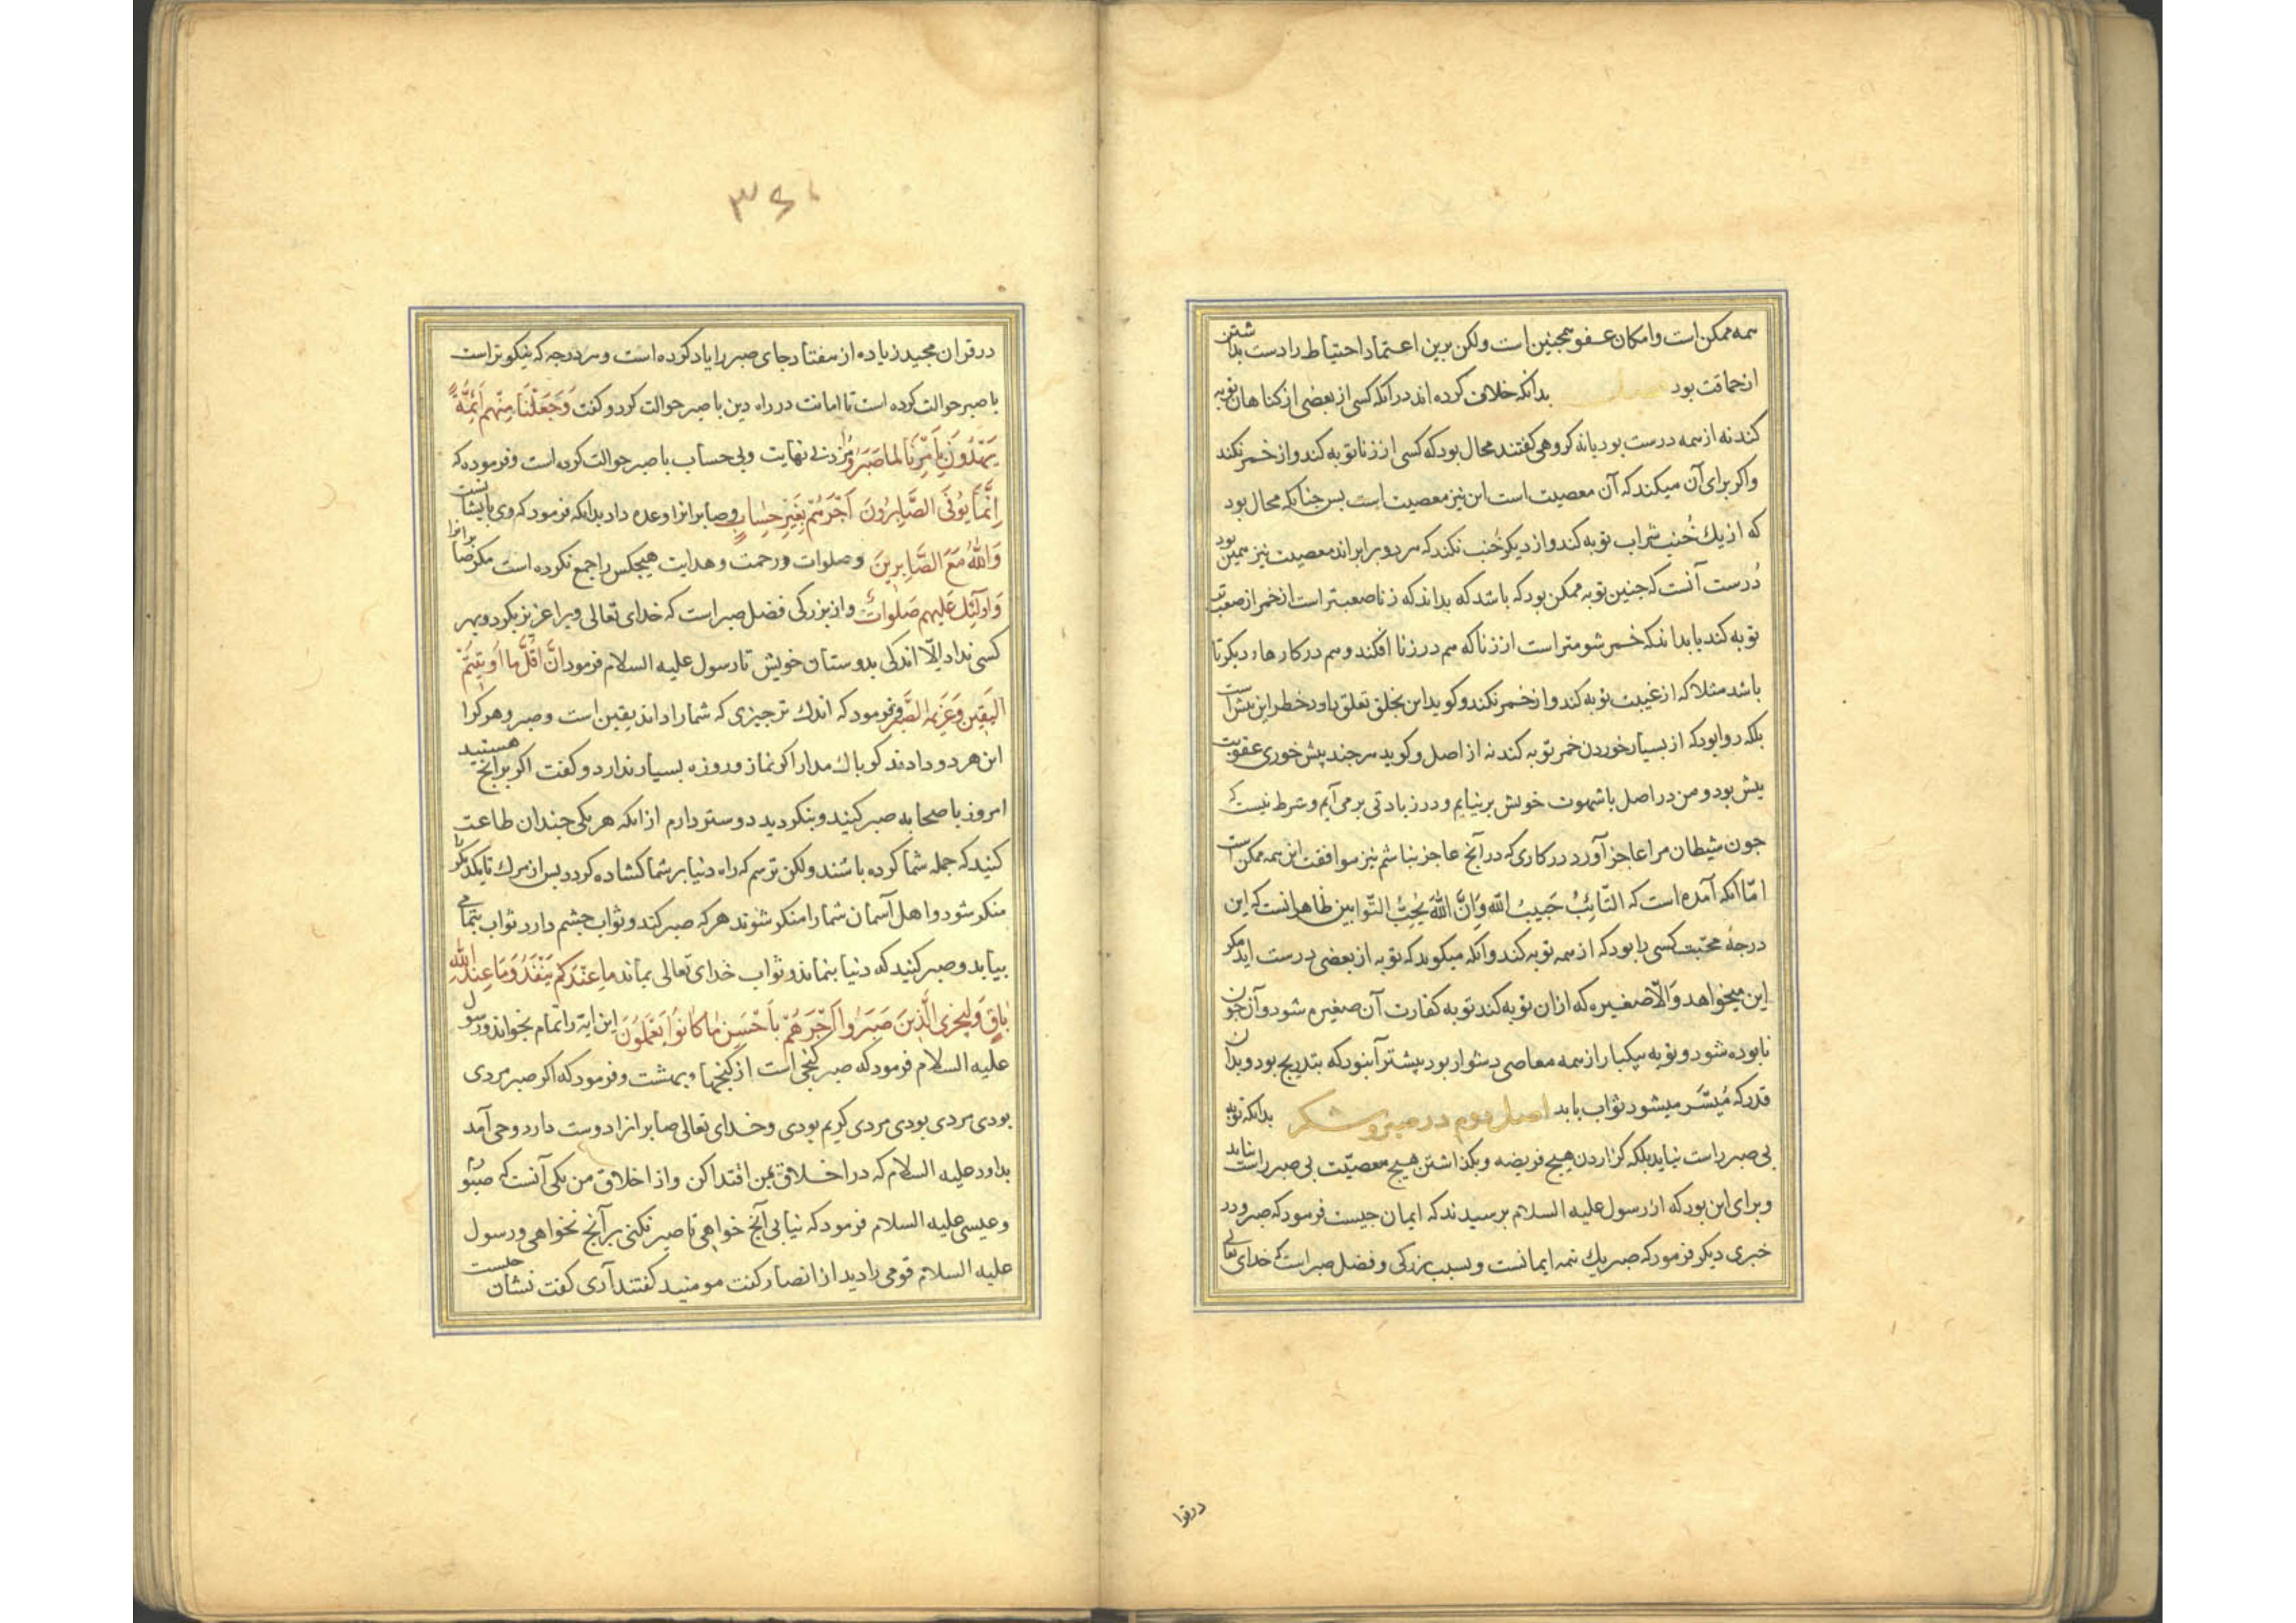 همه ممکن است و امکان عفو همچنین است ولکن برین اعتماد احتیاط را دست بداشتن
از حماقت بود بدانکه خلاف کرده اند در انکه کسی از بعضی از کناهان توبه
کند نه از همه درست بود یا نه کروهی کفتند محال بود که کسی از زنا توبه کند و از خمر نکند
واکر برای آن میکند که آن معصیت است این نیز معصیت است بس جنانکه محال بود
که از یك خُنب شراب توبه کند و از دیکر خُنب نکند که هر دو برابراند معصیت نیز همین بود
دُرست آنست که جنین توبه ممکن بود که باشد که بداند که زنا صعبتر است از خمر از صعب تر
توبه کند یا بداند که خمر شومتر است از زنا که هم در زنا افکند و هم در کارهاء دیکر تا
باشد مثلا که از غیبت توبه کند و از خمر نکند و کوید این بخلق تعلق دارد خطر این بیش است
بلکه روا بود که از بسیار خوردن خمر توبه کند نه از اصل و کوید هر جند بیش خوری عقوبت
بیش بود و من در اصل با شهوت خویش برنیایم و در زیادتی برمی آیم و شرط نیست که
جون شیطان مرا عاجز آورد در کاری که در آنج عاجز نباشم نیز موافقت این همه ممکن است
امّا انکه آمده است که التّائِبُ حَبیبُ الله وَاِنَّ اللهَ یُحِبُّ التّوابین ظاهر انست که این
درجۀ محبّت کسی را بود که از همه توبه کند وانکه میکوید که توبه از بعضی درست اید مکر
این میخواهد وَالّا صغیره که ازان توبه کند توبه کفارت آن صغیره شود و آن جون
نابوده شود و توبه بیکبار از همه معاصی دشوار بود بیشتر آنبود که بتدریج بود و بدان
قدر که مُیَسّر میشود ثواب یابد اصل دوم در صبر و شکر بدانکه توبه
بی صبر راست نیاید بلکه کزاردن هیج فریضه و بکذاشتن هیج معصیّت بی صبر راست نیاید
و برای این بود که از رسول علیه السلام برسیدند که ایمان جیست فرمود که صبر و در
خبری دیکر فرمود که صبر یك نیمه ایمانست و بسبب بزرکی و فضل صبر است که خدای تعالی
درقرا
۳۶۰
در قران مجید زیاده از هفتاد جای صبر را یاد کرده است و هر درجه که نیکوتر است
با صبر حوالت کرده است تا امامت در راه دین با صبر حوالت کرد و کفت وَجَعَلْنَا مِنْهم اَئِمَّةً
یَهْدُونَ بِاَمْرِنَا لَمّا صَبَرُوا و مزد بی نهایت و بی حساب با صبر حوالت کرده است و فرموده که
اِنَّمَا یُوَفّی الصَّابِرُونَ اَجْرَهُم بِغَیْرِ حِسَابٍ و صابرانرا وعده داد بدانکه فرمود که وی با ایشانست
وَاللهُ مَعَ الصَّابِرِینَ و صلوات و رحمت و هدایت هیجکس را جمع نکرده است مکر صابرانرا
وَاولَئِكَ عَلَیهِم صَلَوَاتٌ و از بزرکی فضل صبر است که خدای تعالی ویرا عزیز بکرد و بهر
کسی نداد اِلّا اندکی بدوستان خویش تا رسول علیه السلام فرمود اِنَّ اَقَلَّ ما اُوتِیتُم
الیَقِین وَعَزِیمه الصَّبر و فرمود که اندك تر جیزی که شما را داند یقین است و صبر و هرکرا
این هر دو دادند کو باك مدار اکر نماز و روزه بسیار ندارد و کفت اکر برانج هستید
امروز با صحابه صبر کنید و بنکردید دوستر دارم از انکه هر یکی جندان طاعت
کنید که جمله شما کرده باشند ولکن ترسم که راه دنیا بر شما کشاده کردد بس از مرك تا یکدیکررا
منکر شود و اهل آسمان شما را منکر شوند هر که صبر کند و ثواب جشم دارد ثواب بتمامی
بیابد و صبر کنید که دنیا بنماند و ثواب خدای تعالی بماند ما عِنْدَکم یَنْفَدُ وَمَا عِنْدَ اللهِ
بَاقٍ وَلَیَجزیَ الَّذِینَ صَبَرُوا اَجْرَهُمْ بِاَحْسَنِ مَا کَانُوا یَعْمَلُونَ این ایة را تمام بخواند و رسول
علیه السلام فرمود که صبر کنجی است از کنجهاء بهشت و فرمود که اکر صبر مردی
بودی مردی بودی مردی کریم بودی و خدای تعالی صابرانرا دوست دارد وحی آمد
بداود علیه السلام که در اخلاق بمن اقتدا کن و از اخلاق من یکی آنست که صبورم
و عیسی علیه السلام فرمود که نیابی آنج خواهی تا صبر نکنی بر آنج نخواهی و رسول
علیه السلام قومی را دید از انصار کفت مومنید کفتند آری کفت نشان جیست